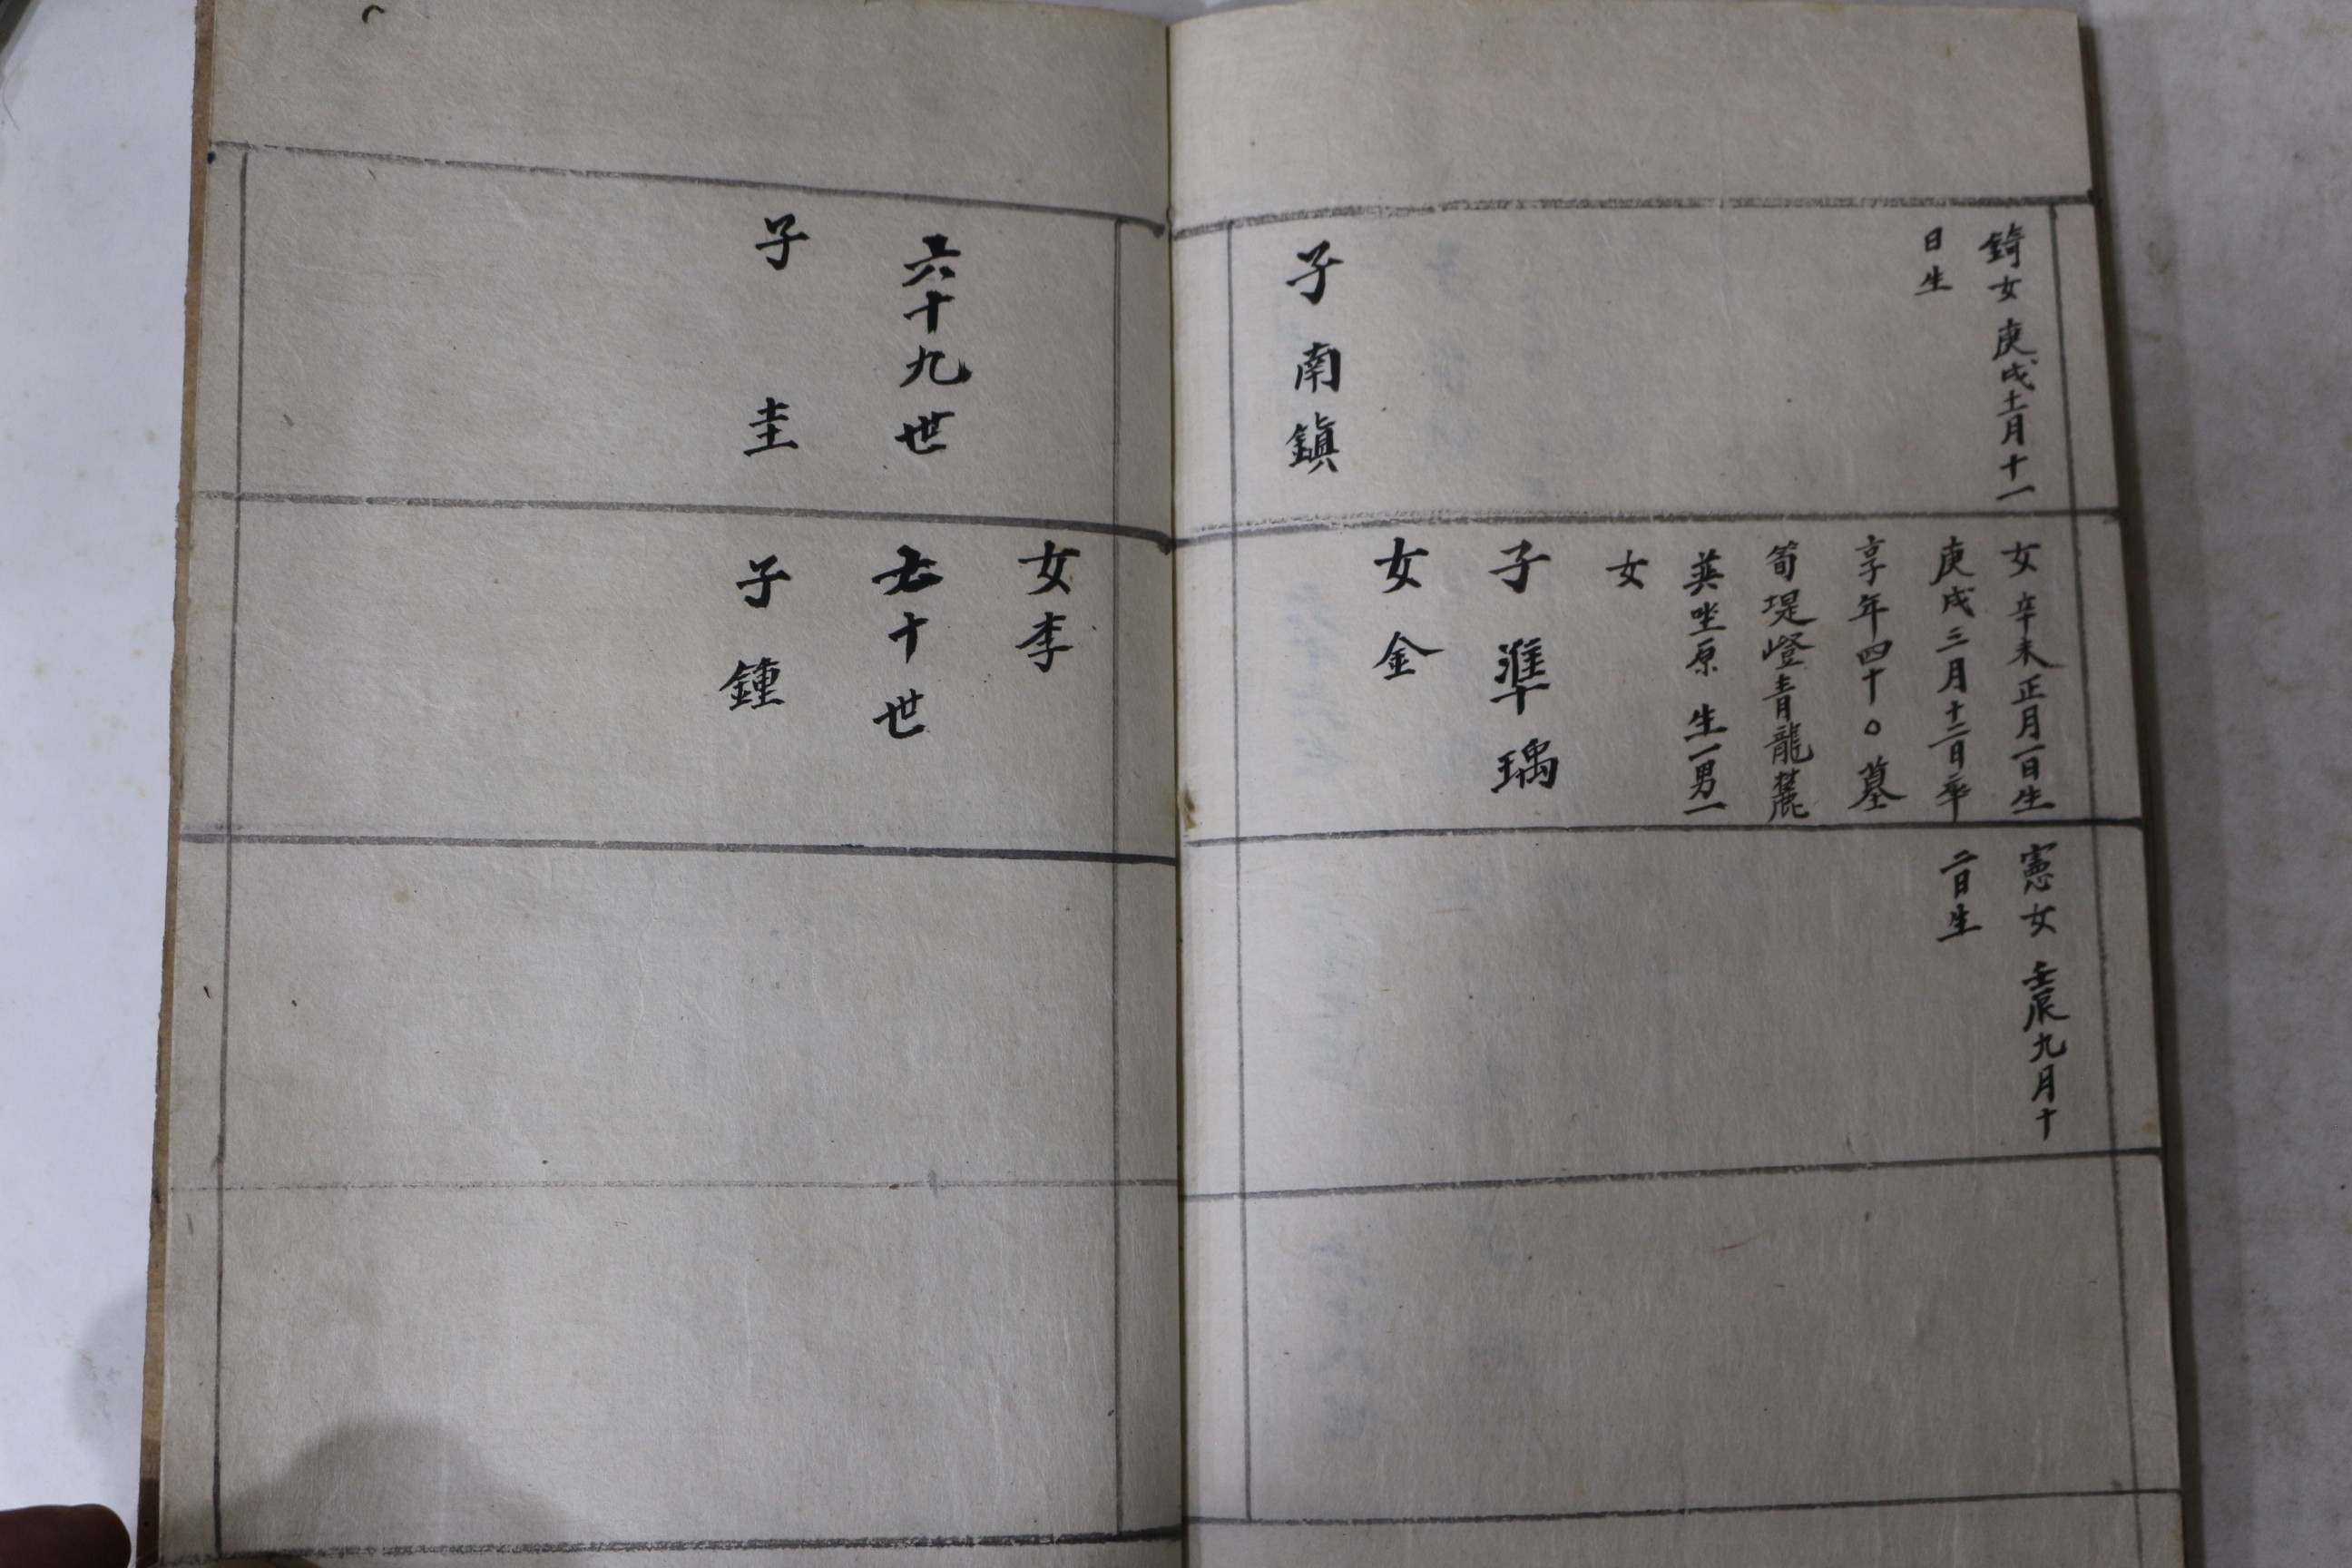 錡女 庚戌十二月十一
日生
子 南鎭
女 辛未正月一日生
庚戌三月十二日卒
享年四十〇墓
筍堤嶝青龍麓
英坐原 生一男一
女
子 準瑀
女 金
憲女 壬辰九月十
二日生
六十九世
子 圭
女 李
七十世
子 鍾